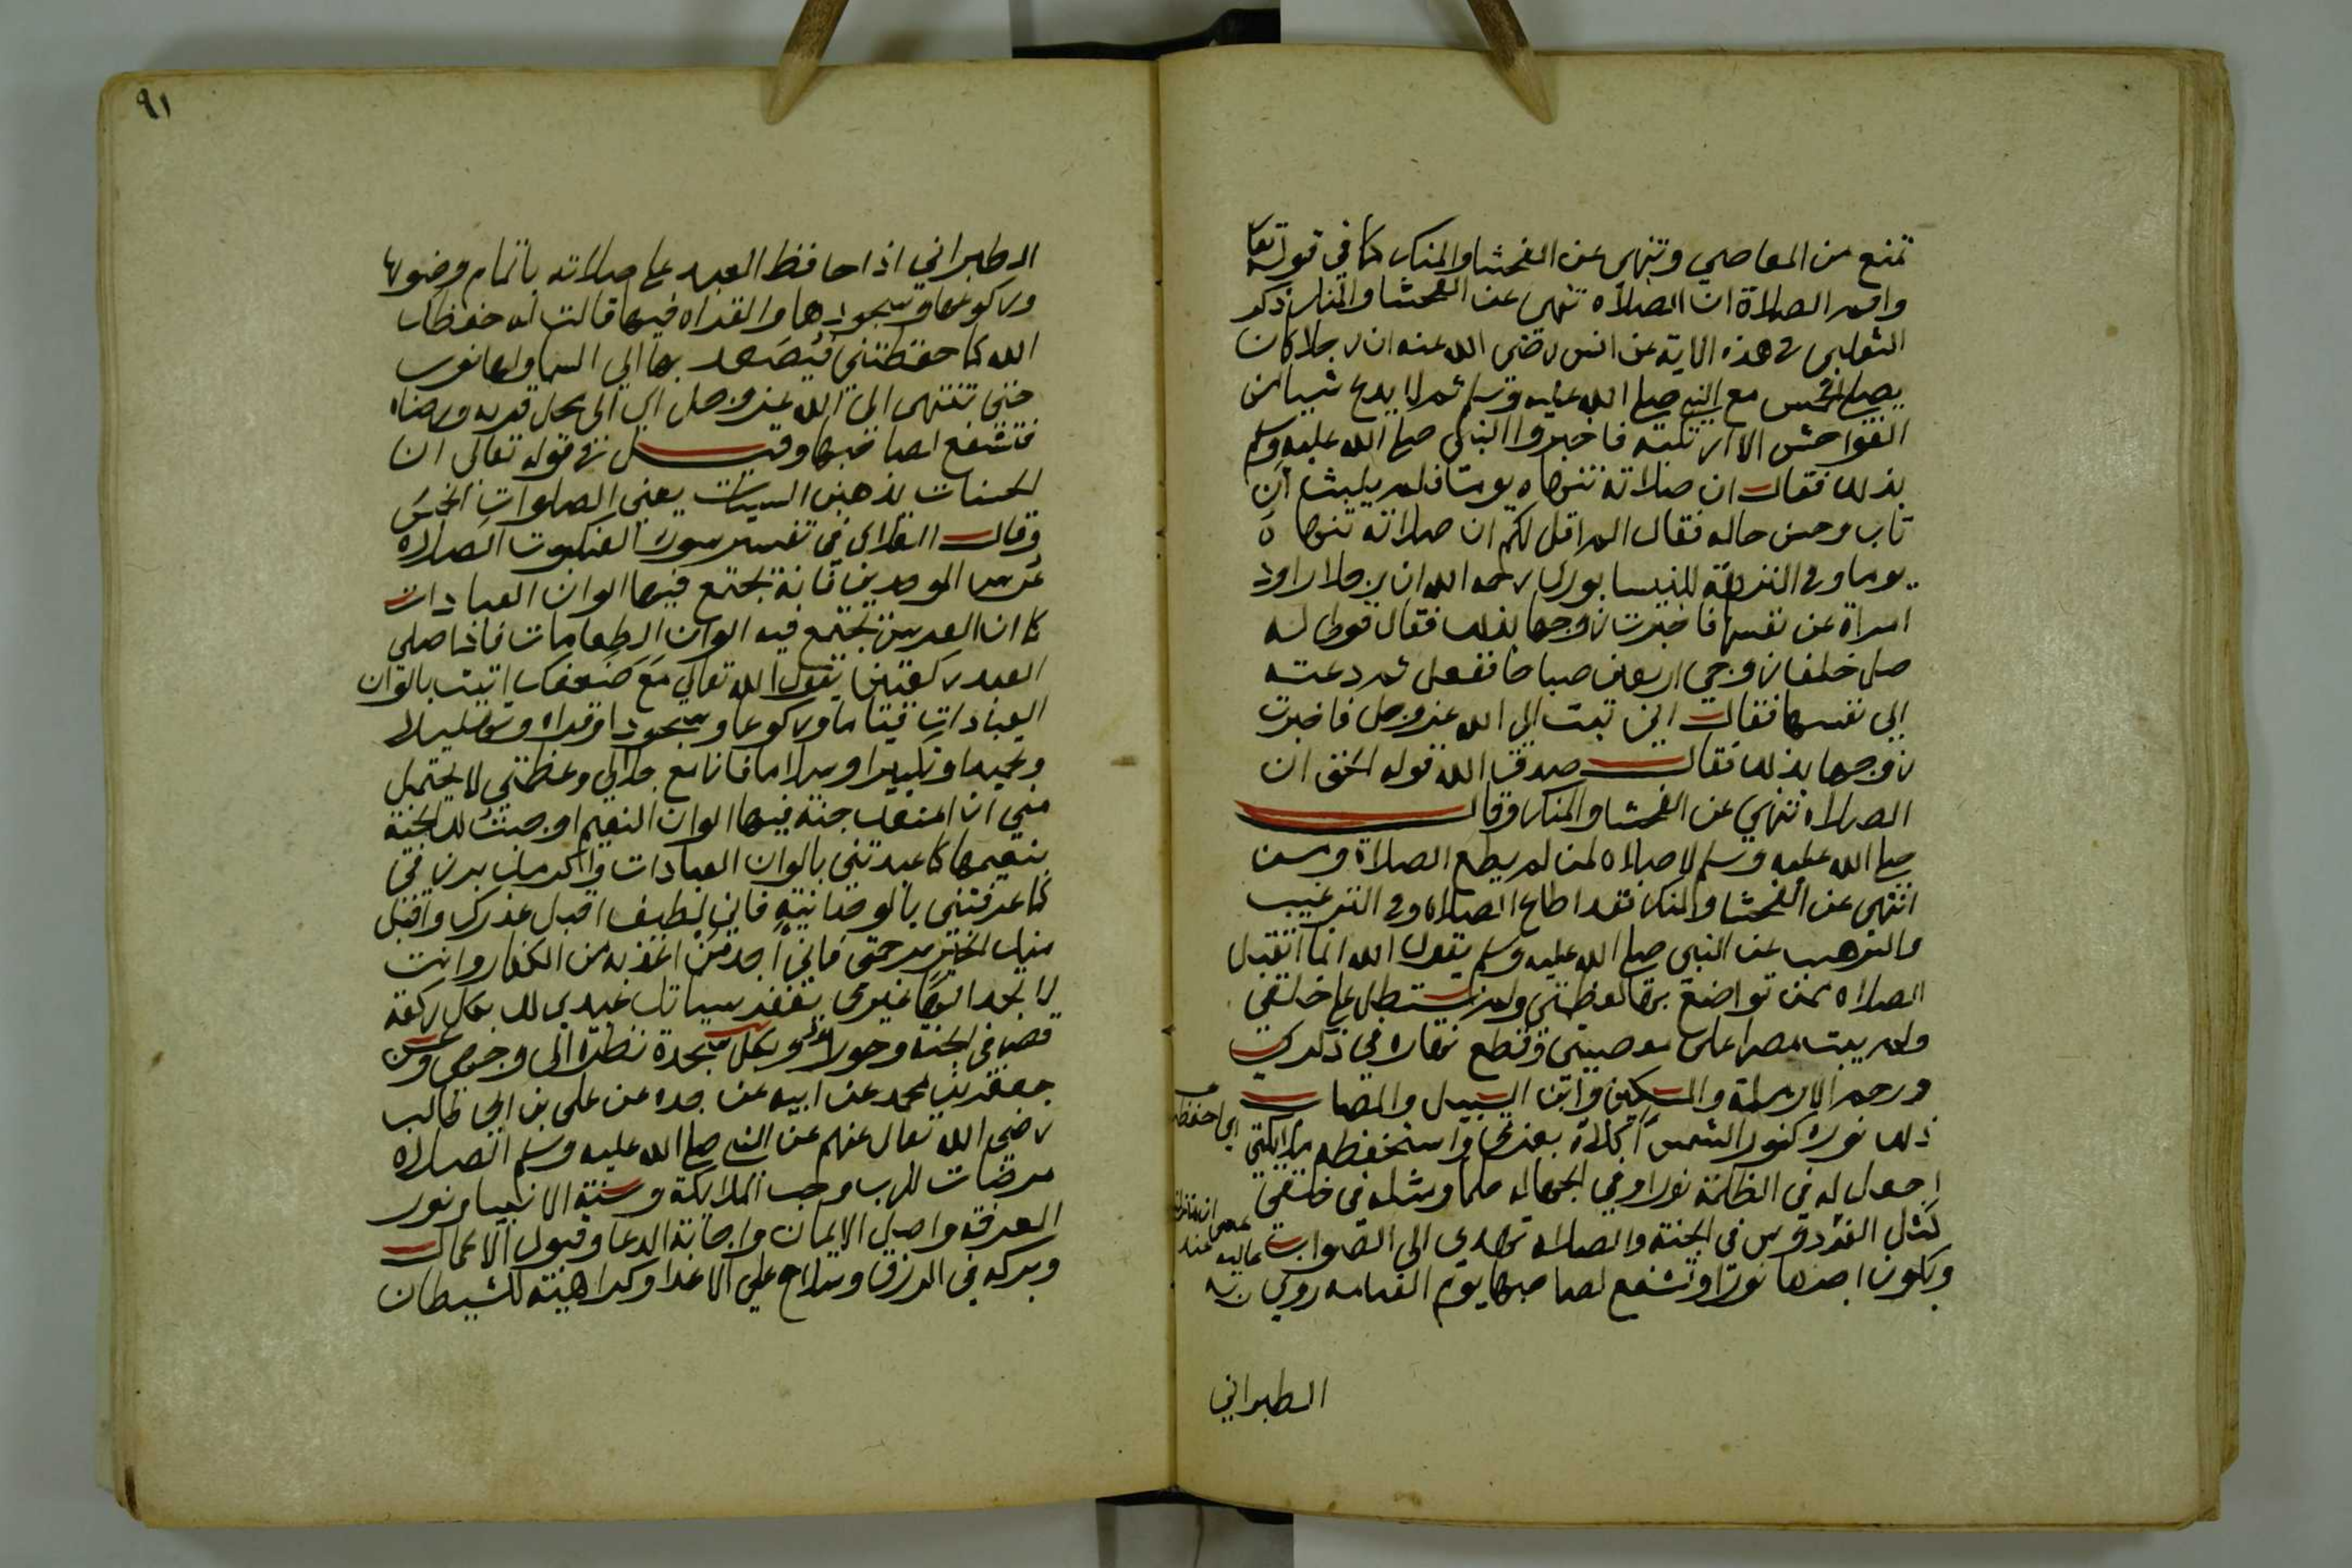 تمنع من المعاصي وتنهى عن الفحشا والمنكر كما في قوله تعا
واقم الصلاة ان الصلاه تنهى عن الفحشا والمنكر ذكر
الثعلبى في هذه الاية عن انس رضى الله عنه ان رجلا كان
يصلى الخمس مع النبي صلى الله عليه وسلم ثم لا يدع شيبا من
الفواحش الا ارتكبه فاخبروا النبي صلى الله عليه وسلم
بذلك فقال ان صلاته تنهاه يوما فلم يلبث ان
تاب وحسن حاله فقال الم اقل لكم ان صلاته تنهاه
يوما وفي النزهة للنيسابوري رحمه الله ان رجلا راود
امراة عن نفسها فاخبرت زوجها بذلك فقال قولى له
صل خلف زوجي اربعين صباحا ففعل ثم دعته
الى نفسها فقال اني تبت الى الله عز وجل فاخبرت
زوجها بذلك فقال صدق الله قوله الحق ان
الصلاه تنهى عن الفحشا والمنكر وقال
صلى الله عليه وسلم لا صلاه لمن لم يطع الصلاة ومن
انتهى عن الفحشا والمنكر فقد اطاع الصلاه وفي الترغيب
والترهيب عن النبى صلى الله عليه وسلم يقول الله انما اتقبل
الصلاه ممن تواضع بها لعظمتي ولم يستطل على خلقي
ولم يبت مصرا على معصيتي وقطع نهاره في ذكري
ورحم الارملة والمسكين وابن السبيل والمصاب
ذلك نوره كنور الشمس اكلاه بعزتي واستحفظه ملايكتي
اي احفظه
اجعل له في الظلمة نورا وفي الجهاله حلما ومثله في خلقي
كمثل الفردوس في الجنة والصلاه تهدي الى الصواب
ويكون اجرها نورا وتشفع لصاحبها يوم القيامه روي
الطبراني
٩١
الطبراني اذا حافظ العبد على صلاته باتمام وضوها
وركوعها وسجودها والقراه فيها قالت له حفظك
الله كما حفظتني فيصعد بها الي السما ولها نور
حتى تنتهى الى الله عز وجل اي الى محل قربه ورضاه
فتشفع لصاحبها وقيل في قوله تعالى ان
الحسنات يذهبن السيات يعني الصلوات الخمس
وقال القرطبى في تفسير سورة العنكبوت الصلاه
عرس الموحدين فانه تجتمع فيها الوان العبادات
كما ان العرس تجتمع فيه الوان الطعامات فاذا صلى
العبد ركعتين يقول الله تعالي مع ضعفك اتيت بالوان
العبادات قياما وركوعا وسجودا وقراه وتهليلا
وتحميدا وتكبيرا وسلاما فانا مع جلالي وعظمتي لا يجمل
مني ان امنعك جنة فيها الوان النعيم اوجبت لك الجنة
بنعيمها كما عبدتني بالوان العبادات واكرمك برويتي
كما عرفتني بالوحدانية فاني لطيف اقبل عذرك واقبل
منك الخير برحمتي فاني اجد من اعذبه من الكفار وانت
لا تجد الها غيري يغفر سياتك عبدي لك بكل ركعة
قصر في الجنة وحورا وبكل سجدة نظرة الى وجهي وعن
جعفر بن محمد عن ابيه عن جده عن على بن ابي طالب
رضى الله تعال عنهم عن النبي صلى الله عليه وسلم الصلاه
مرضات للرب وحب الملايكة وسنة الانبيا ونور
المعرفة واصل الايمان واجابة الدعا وقبول الاعمال
وبركه في الرزق وسلاح على الاعدا وكراهية للشيطان